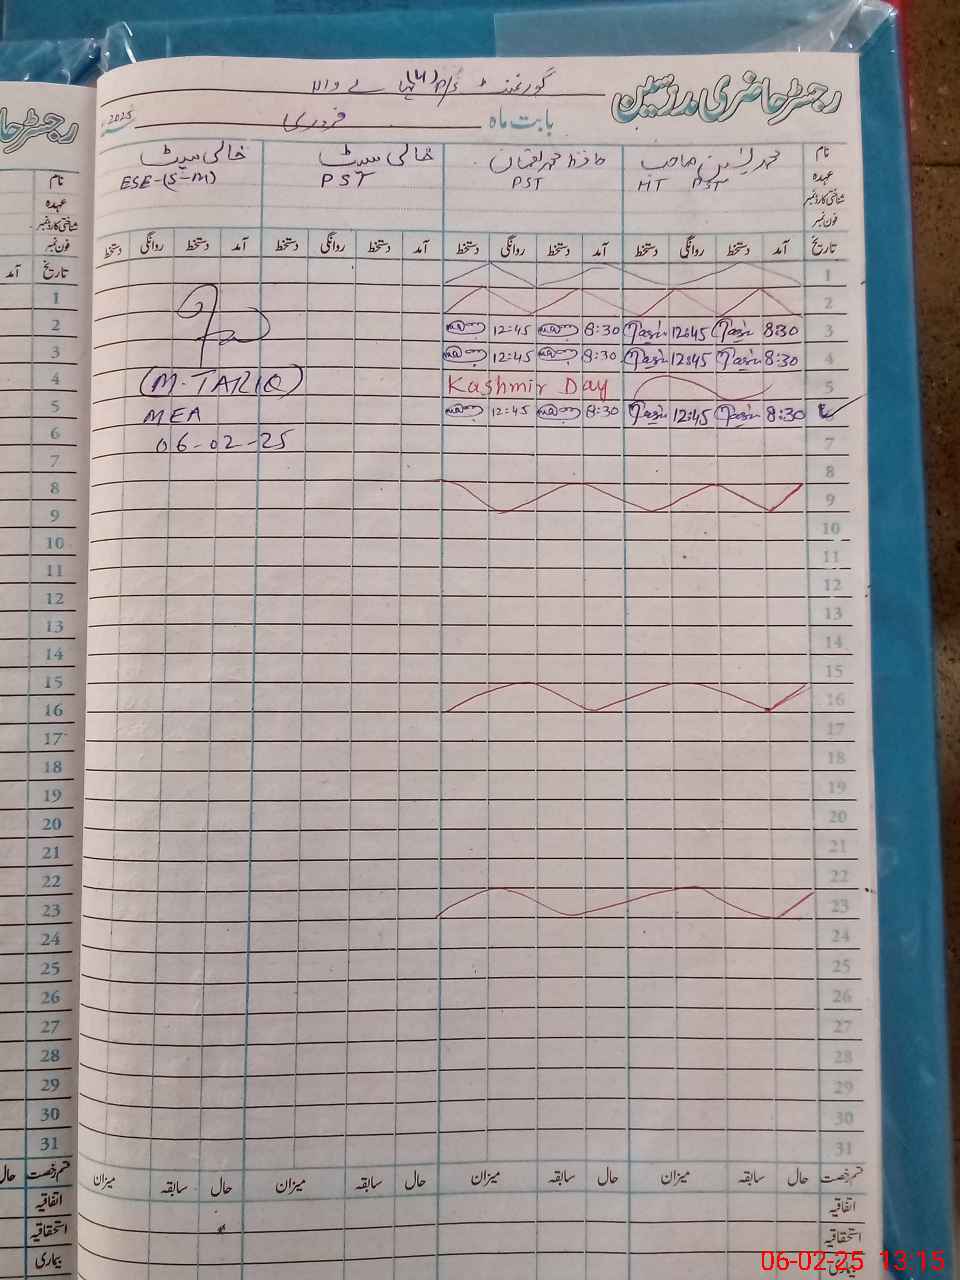 رجسٹر حاضری مدرسین
گورنمنٹ P/S والا
بابت ماہ فروری 2025
نام محمد یٰسین صاحب حافظ محمد لقمان خالی سیٹ خالی سیٹ
عہدہ HT PST PST PST ESE-(S-M)
شناختی کارڈ نمبر
فون نمبر
تاریخ آمد دستخط روانگی دستخط آمد دستخط روانگی دستخط آمد دستخط روانگی دستخط آمد دستخط روانگی دستخط
1
2
3 8:30 Yasin 12:45 Yasin 8:30 12:45
4 8:30 Yasin 12:45 Yasin 8:30 12:45
5 Kashmir Day
8:30 Yasin 12:45 Yasin 8:30 12:45
(M. TARIQ)
MEA
06-02-25
7
8
9
10
11
12
13
14
15
16
17
18
19
20
21
22
23
24
25
26
27
28
29
30
31
قسم رخصت حال سابقہ میزان حال سابقہ میزان حال سابقہ میزان حال سابقہ میزان
اتفاقیہ
استحقاقیہ
بیماری
رجسٹر حا
نام
عہدہ
شناختی کارڈ نمبر
فون نمبر
تاریخ آمد
1
2
3
4
5
6
7
8
9
10
11
12
13
14
15
16
17
18
19
20
21
22
23
24
25
26
27
28
29
30
31
قسم رخصت حال
اتفاقیہ
استحقاقیہ
بیماری
06-02-25 13:15